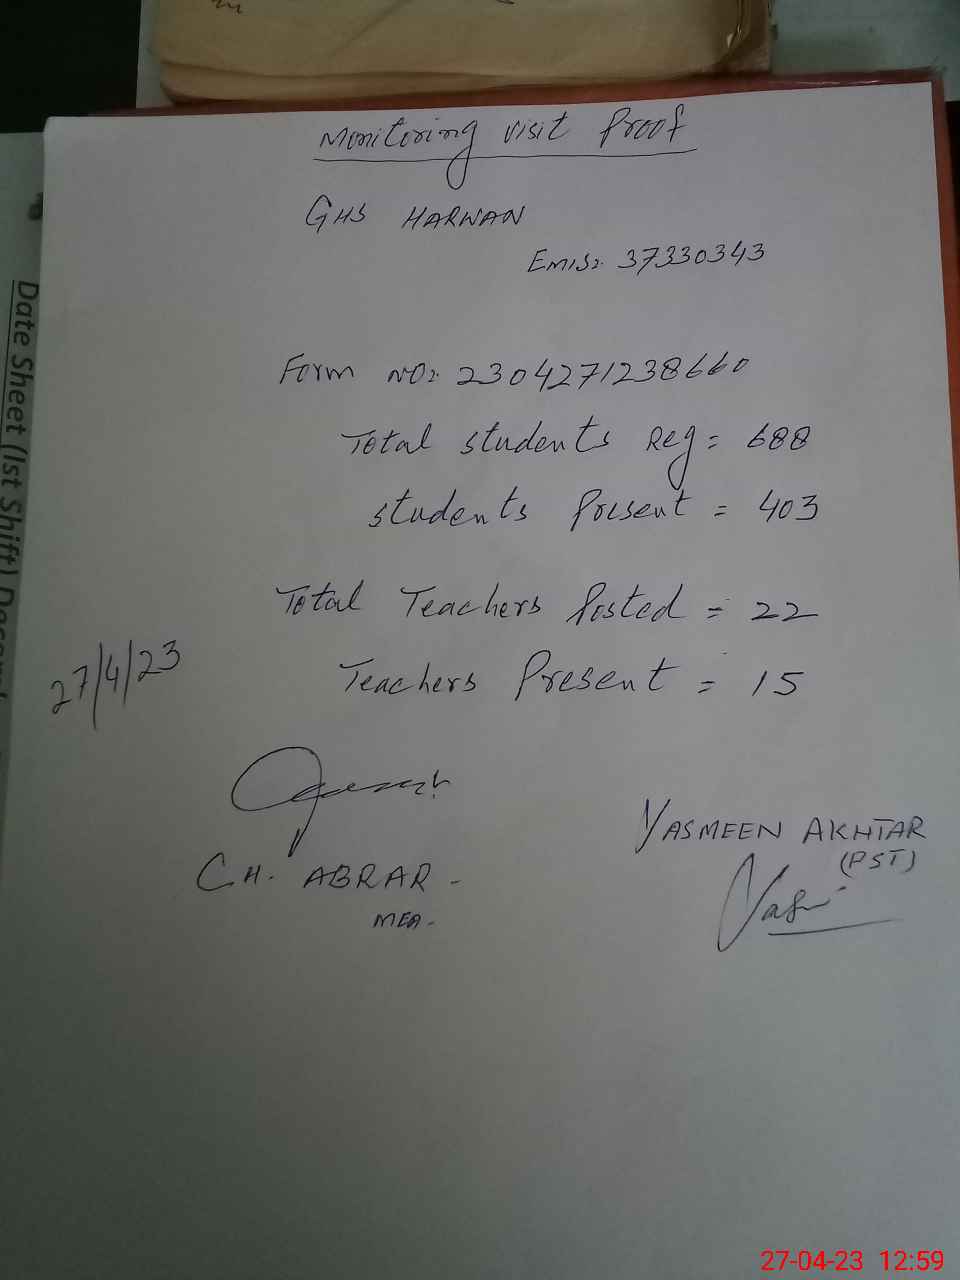 Monitoring visit Proof
GHS HARWAN
EMIS: 37330343
Form NO: 2304271238660
Total students Reg = 688
students Present = 403
Total Teachers Posted = 22
27/4/23
Teachers Present = 15
CH. ABRAR -
MEA-
YASMEEN AKHTAR
(PST)
Date Sheet (Ist Shift)
27-04-23 12:59